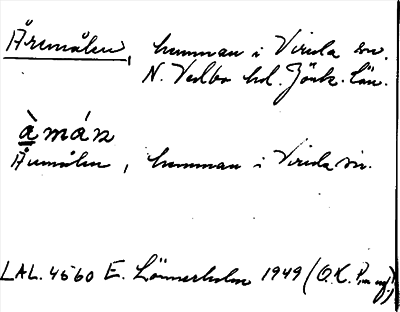 Åremålen, hemman i Vireda sn.
N. Vedbo hd. Jönk. län.
àmán
Åumålen, hemman i Vireda sn.
LAL. 4560 E. Lönnerholm 1949 (O.K.